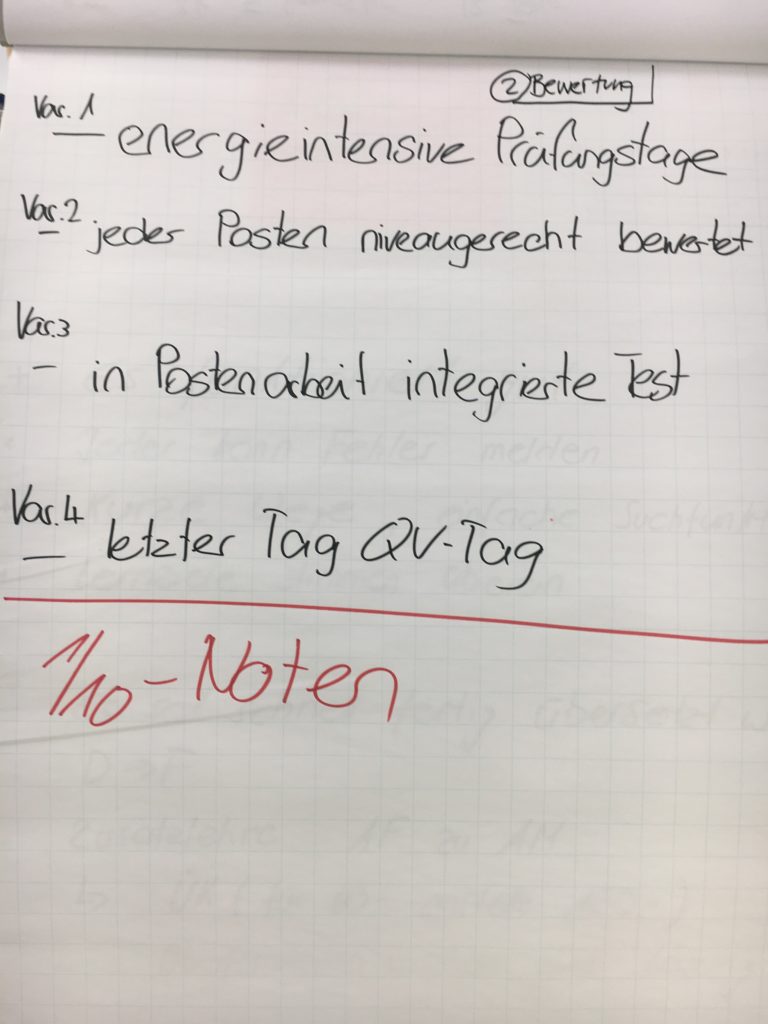 ② Bewertung
Var. 1
– energieintensive Prüfungstage
Var. 2
– jeder Posten niveaugerecht bewertet
Var. 3
– in Postenarbeit integrierte Test
Var. 4
– letzter Tag QV-Tag
1/10 - Noten
Jeder kann Fehler melden